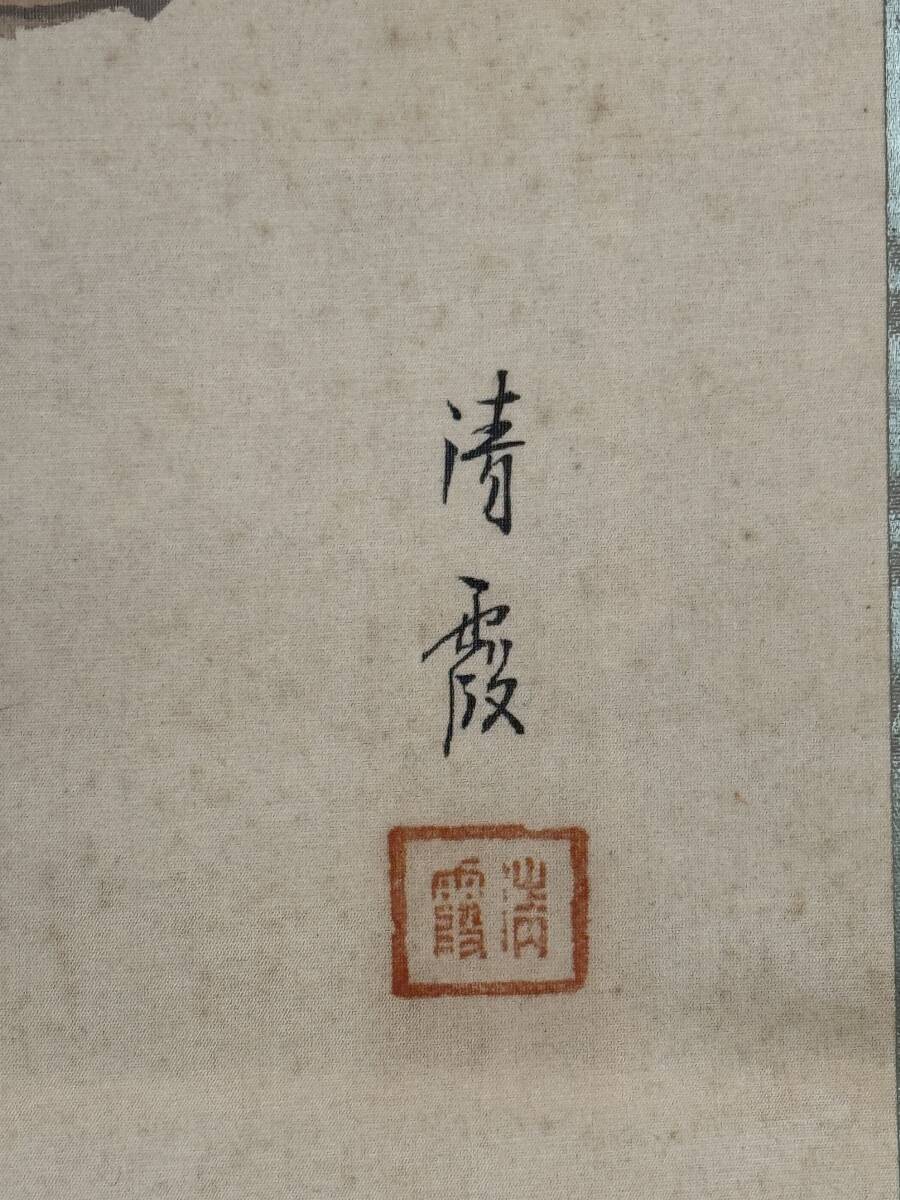 清霞
清霞